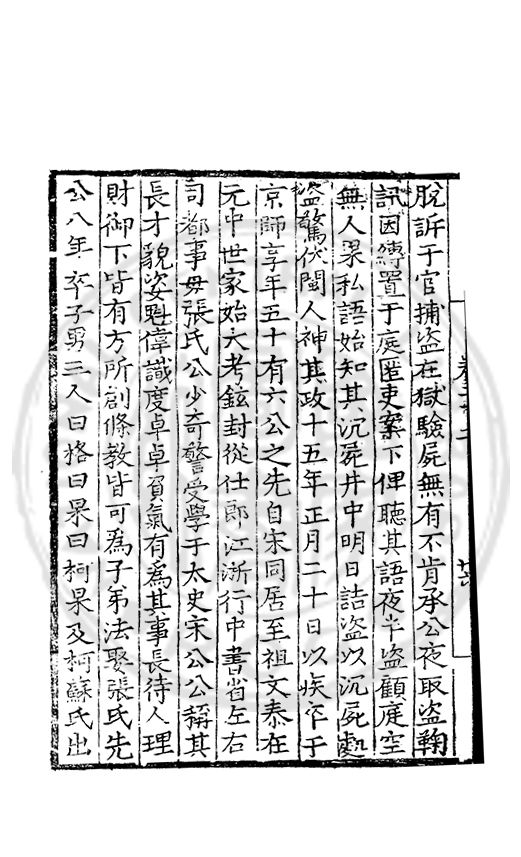 脫訴于官捕盜在獄驗屍無有不肯承公夜取盜鞠
訊因縛置于庭匿吏案下俾聽其語夜半盜顧庭空
無人果私語始知其沉屍井中明日詰盜以沉屍處
盜驚伏閩人神其政十五年正月二十日以疾卒于
京師享年五十有六公之先自宋同居至祖文泰在
元中世家始大考鉉封從仕郎江浙行中書省左右
司都事母張氏公少奇警受學于太史宋公公稱其
長才貌姿魁偉識度卓卓負氣有為其事長待人理
財御下皆有方所創條教皆可為子弟法娶張氏先
公八年卒子男三人曰格曰杲曰柯杲及柯蘇氏出